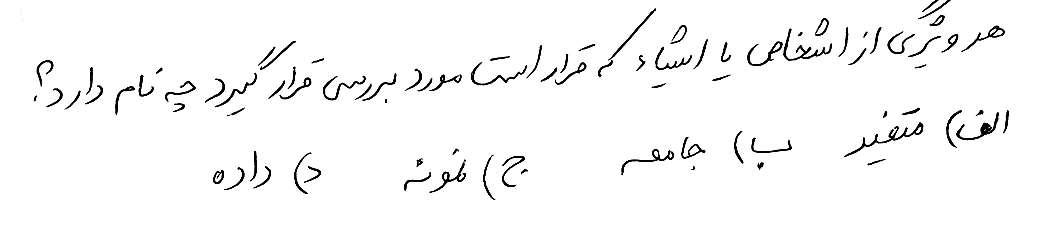 هر ویژگی از اشخاص یا اشیاء که قرار است مورد بررسی قرار گیرد چه نام دارد؟
الف) متغیر ب) جامعه ج) نمونه د) داده